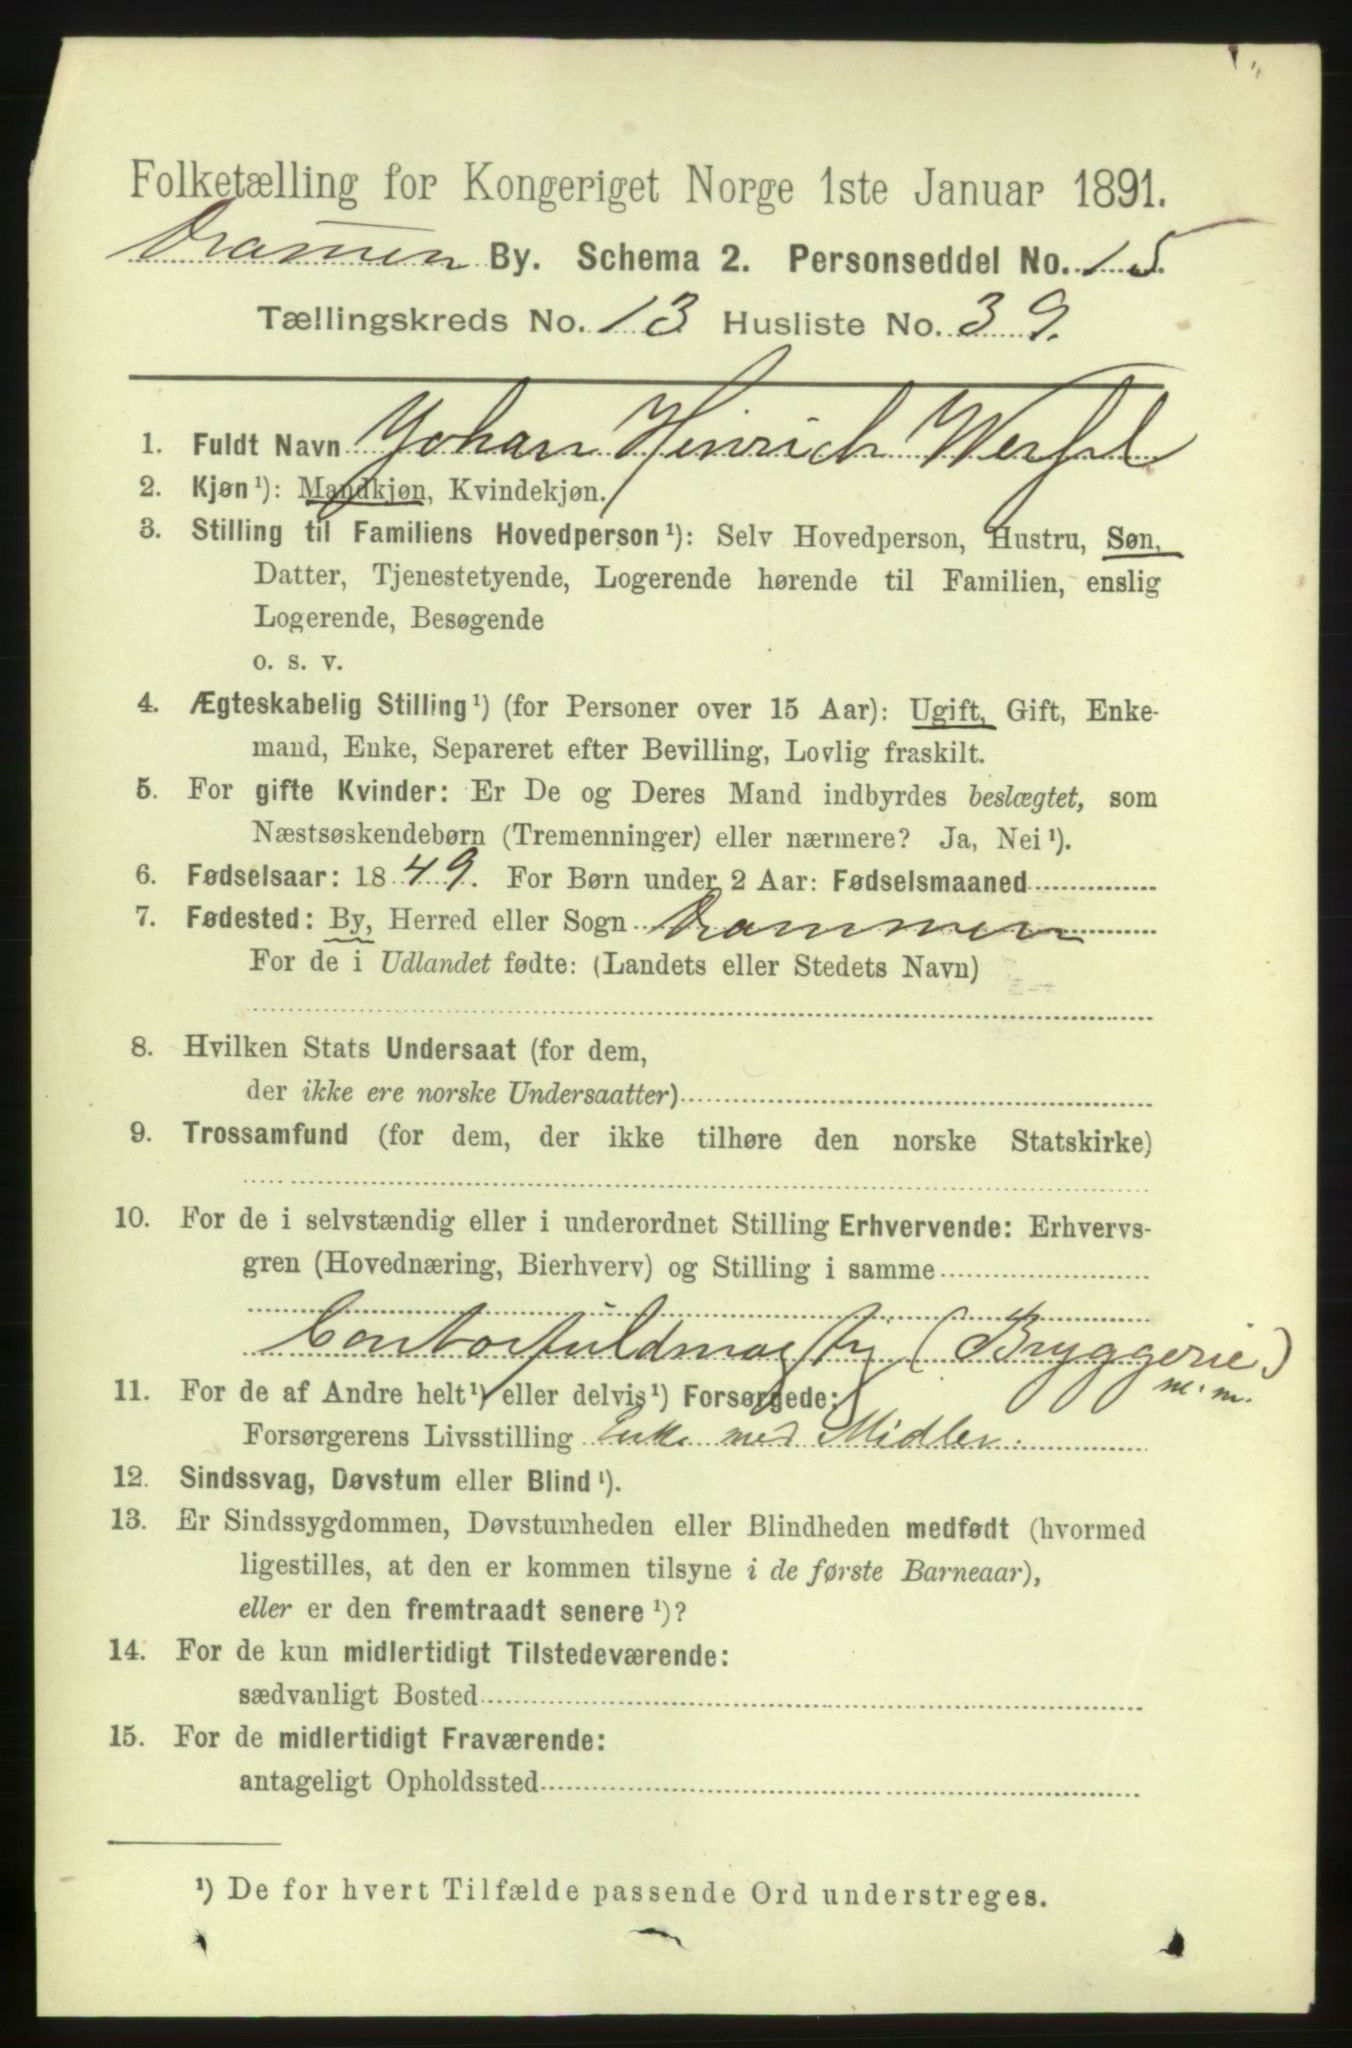 Folketælling for Kongeriget Norge 1ste Januar 1891.
Drammen By. Schema 2. Personseddel No. 15.
Tællingskreds No. 13 Husliste No. 39.
1. Fuldt Navn Johan Hinrich
2. Kjøn¹): Mandkjøn, Kvindekjøn.
3. Stilling til Familiens Hovedperson¹): Selv Hovedperson, Hustru, Søn,
Datter, Tjenestetyende, Logerende hørende til Familien, enslig
Logerende, Besøgende
o. s. v.
4. Ægteskabelig Stilling¹) (for Personer over 15 Aar): Ugift, Gift, Enke-
mand, Enke, Separeret efter Bevilling, Lovlig fraskilt.
5. For gifte Kvinder: Er De og Deres Mand indbyrdes beslægtet, som
Næstsøskendebørn (Tremenninger) eller nærmere? Ja, Nei¹).
6. Fødselsaar: 1849. For Børn under 2 Aar: Fødselsmaaned
7. Fødested: By, Herred eller Sogn Drammen
For de i Udlandet fødte: (Landets eller Stedets Navn)
8. Hvilken Stats Undersaat (for dem,
der ikke ere norske Undersaatter)
9. Trossamfund (for dem, der ikke tilhøre den norske Statskirke)
10. For de i selvstændig eller i underordnet Stilling Erhvervende: Erhvervs-
gren (Hovednæring, Bierhverv) og Stilling i samme
Contorfuldmægtig (Bryggerie)
m. m.
11. For de af Andre helt¹) eller delvis¹) Forsørgede:
Forsørgerens Livsstilling Enke med Midler.
12. Sindssvag, Døvstum eller Blind¹).
13. Er Sindssygdommen, Døvstumheden eller Blindheden medfødt (hvormed
ligestilles, at den er kommen tilsyne i de første Barneaar),
eller er den fremtraadt senere¹)?
14. For de kun midlertidigt Tilstedeværende:
sædvanligt Bosted
15. For de midlertidigt Fraværende:
antageligt Opholdssted
¹) De for hvert Tilfælde passende Ord understreges.